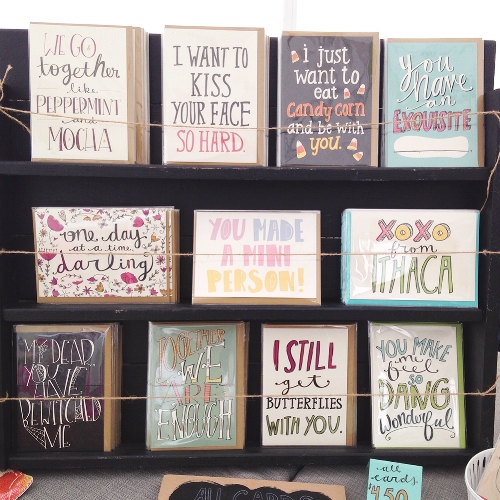 WE GO
together
like
PEPPERMINT
and
MOCHA
I WANT TO
KISS
YOUR FACE
SO HARD.
i just
want to
eat
candy corn
and be with
you.
you
have
an
EXQUISITE
one day
at a time,
darling
YOU MADE
A MINI
PERSON!
XOXO
from
ITHACA
MY DEAR,
YOU'VE
BEWITCHED
ME
TOGETHER
WE
ARE
ENOUGH
I STILL
get
BUTTERFLIES
WITH YOU.
YOU MAKE
me feel
SO
DANG
wonderful
ALL CARDS
all
cards
$4.50